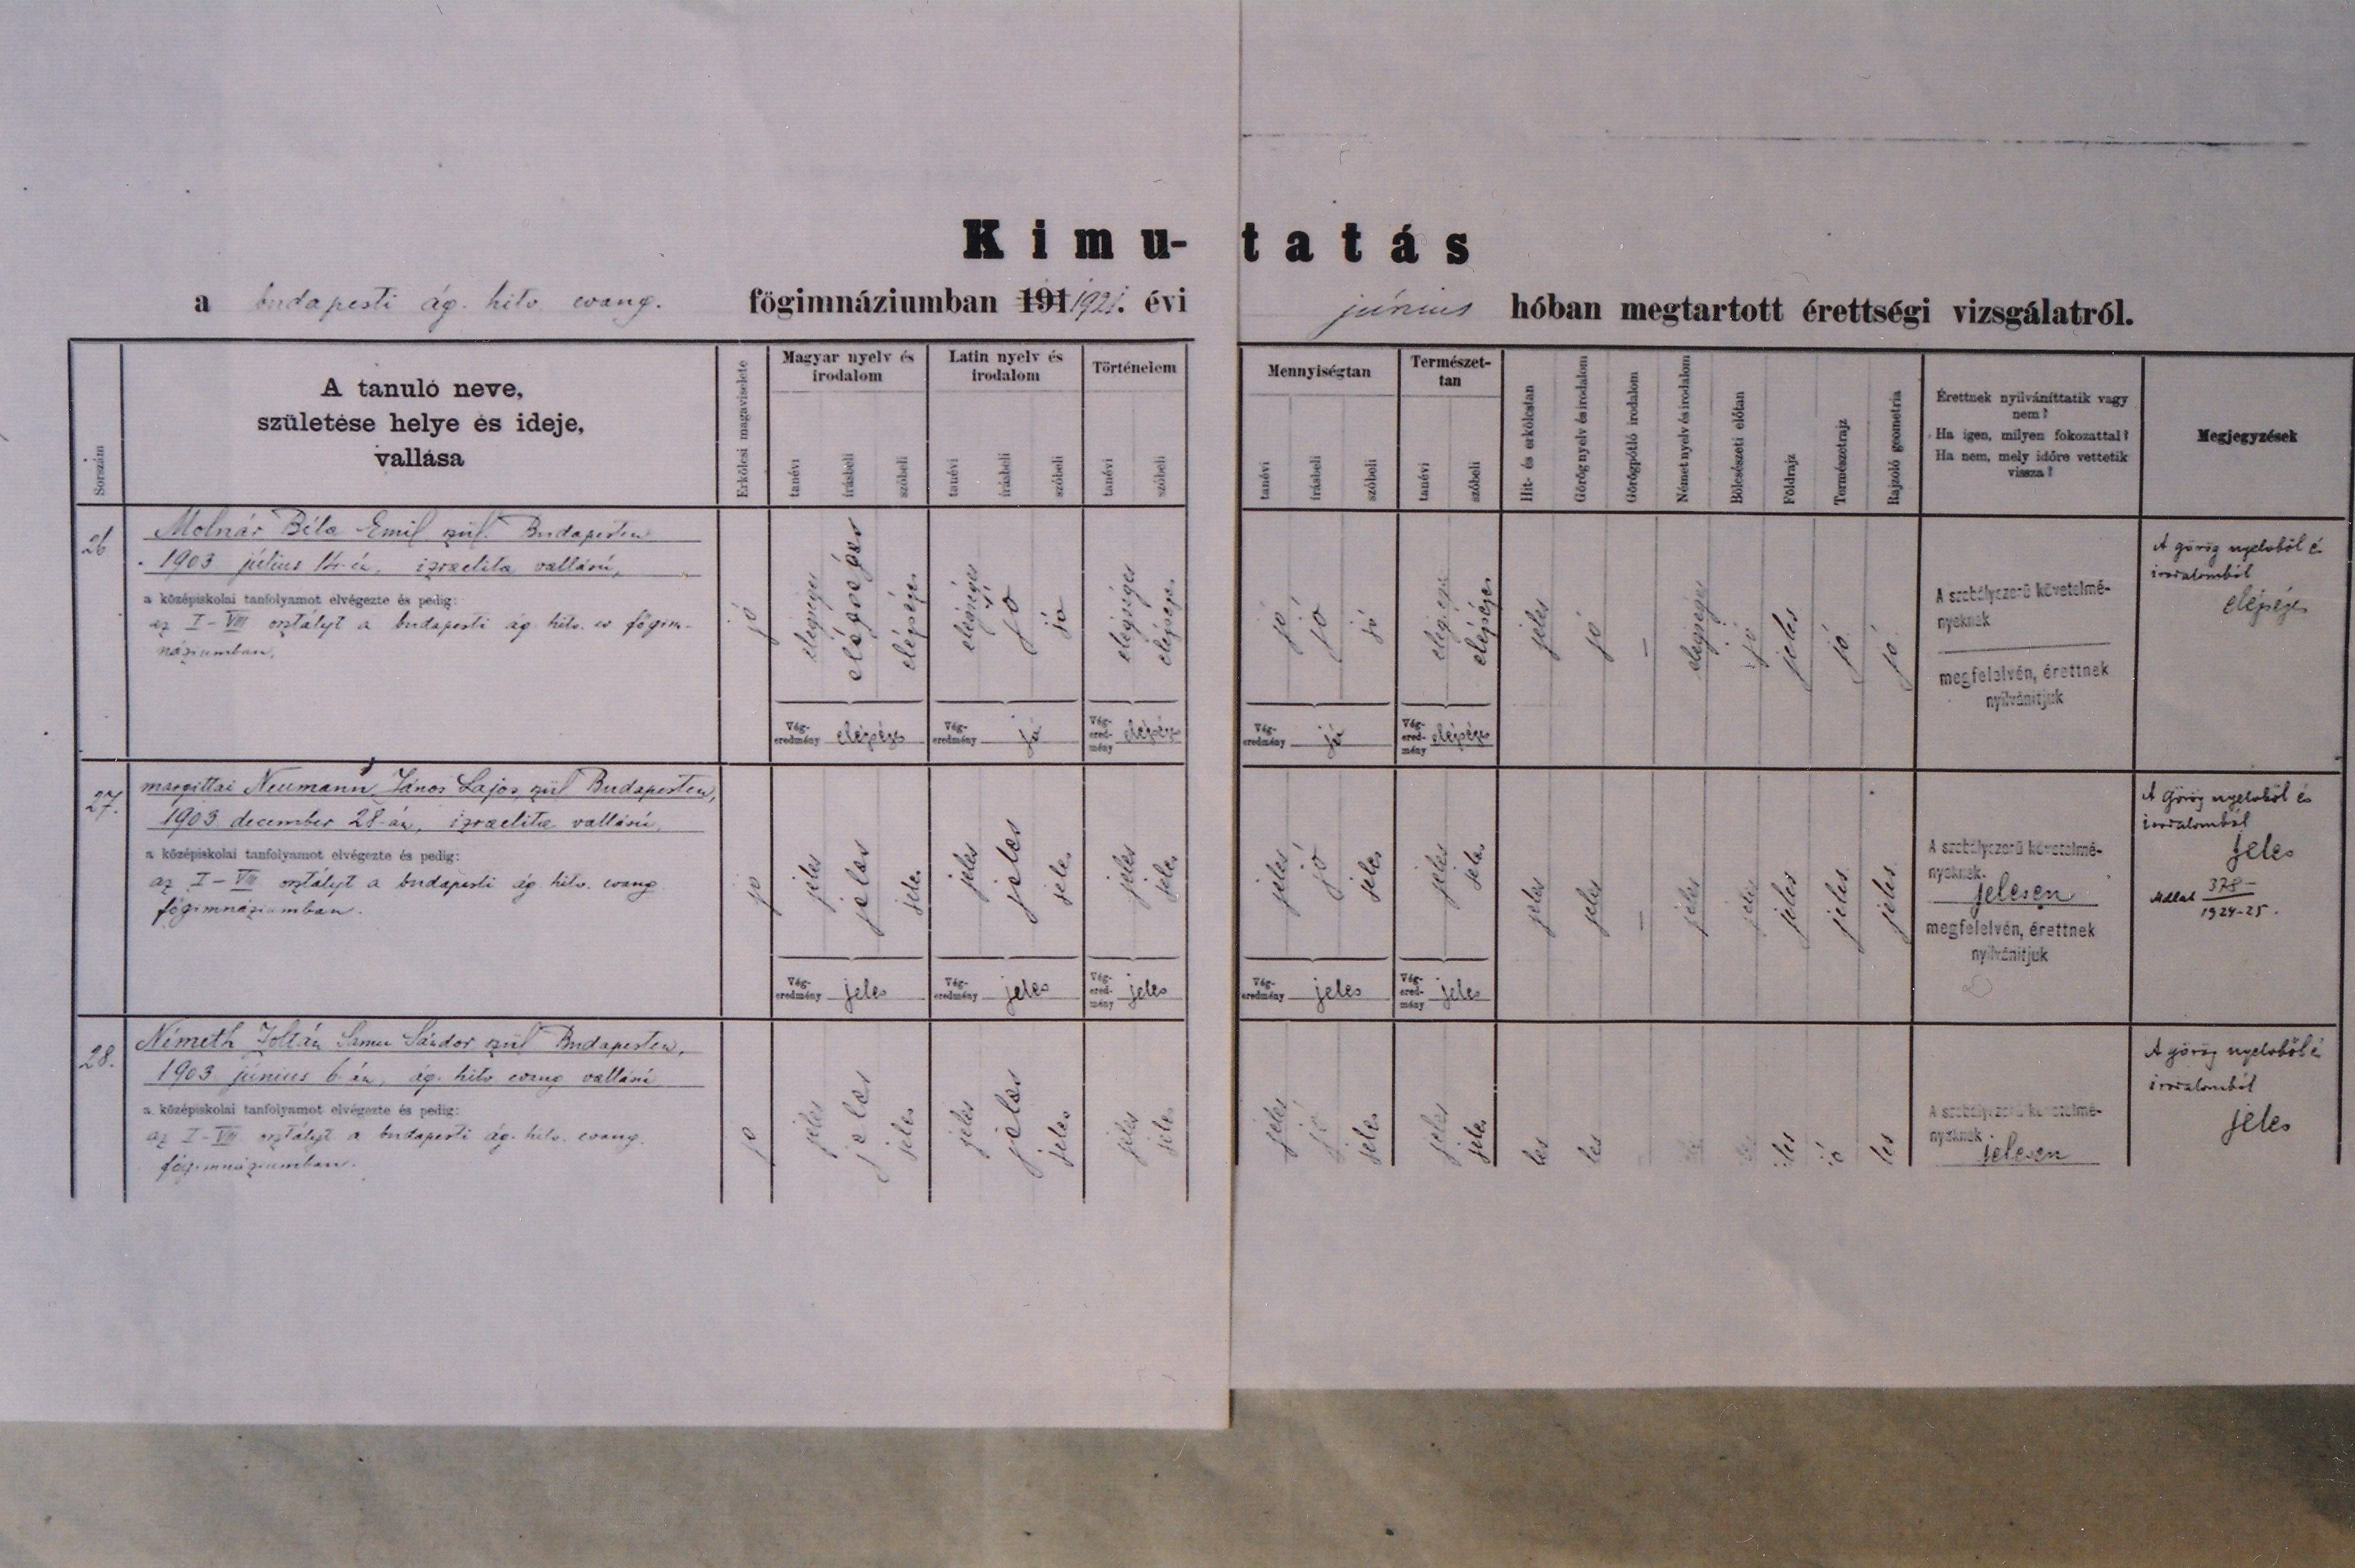 Kimu- tatás
a budapesti ág. hitv. evang. főgimnáziumban 191 1921. évi június hóban megtartott érettségi vizsgálatról.
Sorszám
A tanuló neve,
születése helye és ideje,
vallása
Erkölcsi magaviselete
Magyar nyelv és
irodalom
tanévi
írásbeli
szóbeli
Latin nyelv és
irodalom
tanévi
írásbeli
szóbeli
Történelem
tanévi
szóbeli
Mennyiségtan
tanévi
írásbeli
szóbeli
Természet-
tan
tanévi
szóbeli
Hit- és erkölcstan
Görög nyelv és irodalom
Görögpótló irodalom
Német nyelv és irodalom
Bölcsészeti előtan
Földrajz
Természetrajz
Rajzoló geometria
Érettnek nyilváníttatik vagy
nem?
Ha igen, milyen fokozattal?
Ha nem, mely időre vettetik
vissza?
Megjegyzések
26
Molnár Béla Emil szül. Budapesten
1903 július 14-én, izraelita vallású,
a középiskolai tanfolyamot elvégezte és pedig:
az I-VIII osztályt a budapesti ág. hitv. ev főgim-
náziumban.
jó
elégséges
elégséges
elégséges
Vég-
eredmény elégséges
elégséges
jó
jó
Vég-
eredmény jó
elégséges
elégséges
Vég-
ered-
mény elégséges
jó
jó
jó
Vég-
eredmény jó
elégséges
elégséges
Vég-
ered-
mény elégséges
jeles
jó
—
elégséges
jó
jeles
jó
jó
A szabályszerű követelmé-
nyeknek
megfelelvén, érettnek
nyilvánítjuk
A görög nyelvből é
irodalomból
elégséges
27.
margittai Neumann János Lajos szül Budapesten,
1903 december 28-án, izraelita vallású,
a középiskolai tanfolyamot elvégezte és pedig:
az I-VIII osztályt a budapesti ág. hitv. evang
főgimnáziumban.
jó
jeles
jeles
jeles
Vég-
eredmény jeles
jeles
jeles
jeles
Vég-
eredmény jeles
jeles
jeles
Vég-
ered-
mény jeles
jeles
jó
jeles
Vég-
eredmény jeles
jeles
jeles
Vég-
ered-
mény jeles
jeles
jeles
—
jeles
jeles
jeles
jeles
jeles
A szabályszerű követelmé-
nyeknek
jelesen
megfelelvén, érettnek
nyilvánítjuk
A görög nyelvből és
irodalomból
jeles
378
1924-25.
28.
Németh Zoltán Samu Sándor szül Budapesten,
1903 június 6-án, ág. hitv evang vallású
a középiskolai tanfolyamot elvégezte és pedig:
az I-VIII osztályt a budapesti ág. hitv. evang.
főgimnáziumban.
jó
jeles
jeles
jeles
jeles
jeles
jeles
jeles
jeles
jeles
jó
jeles
jeles
jeles
les
les
les
ó
les
A szabályszerű követelmé-
nyeknek
jelesen
A görög nyelvből é
irodalomból
jeles